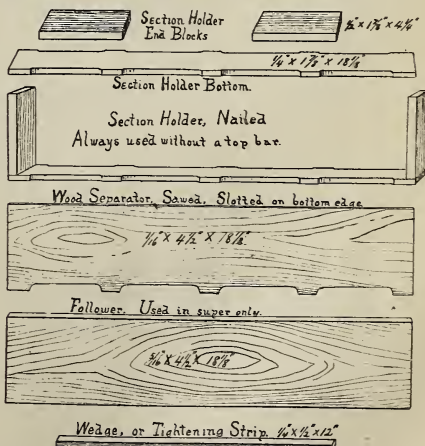 Section Holder
End Blocks
Section Holder Bottom.
Section Holder, Nailed
Always used without a top bar.
Wood Separator, Sawed, Slotted on bottom edge
4½" x 18½"
Follower. Used in super only.
Wedge, or Tightening Strip.